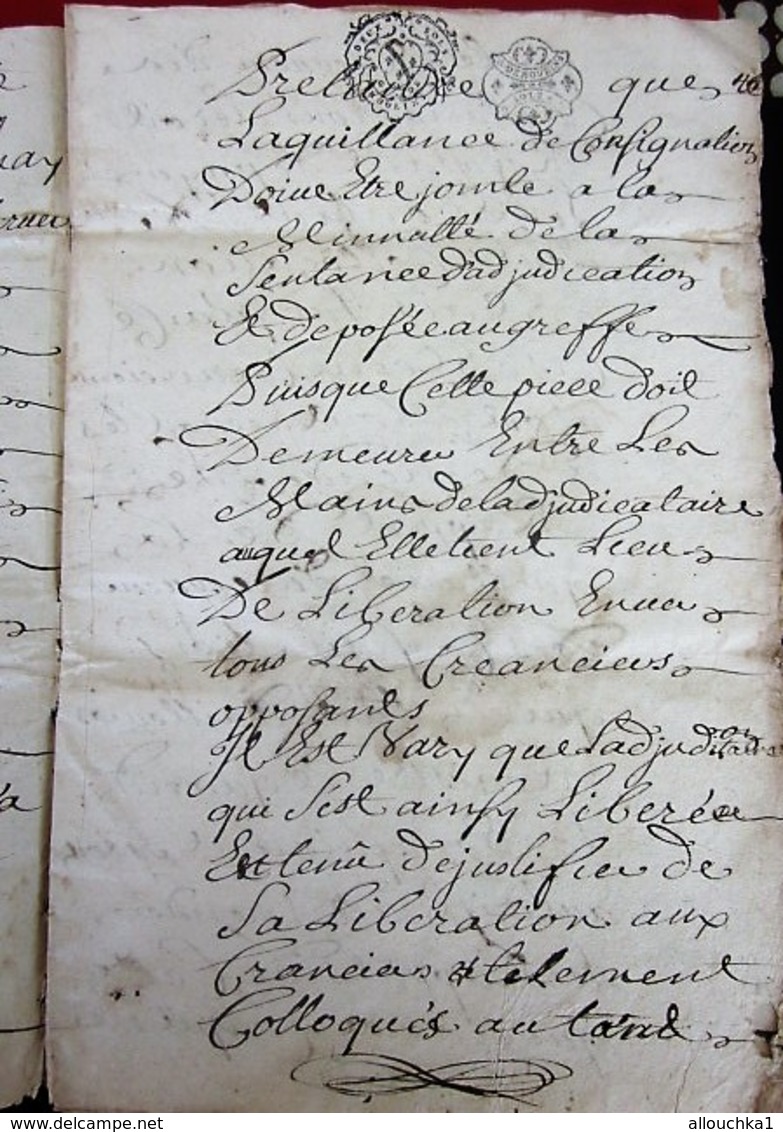 DEUX SOLS
Pretendre que
Laquittance de Consignation
Doiue Etre jointe a la
Minutte de la
Sentance dadjudication
Et deposée au greffe
Puisque Cette piece doit
Demeurer Entre Les
Mains de ladjudicataire
auquel Elle tient Lieu
De Liberation Enuers
tous Les Creanciers
opposants
Il Est Vray que Ladjudicataire
qui Sest ainsy Liberée
Est tenû de justifier de
Sa Liberation aux
Cranciers utilement
Colloqués au
delcampe.net
allouchka1